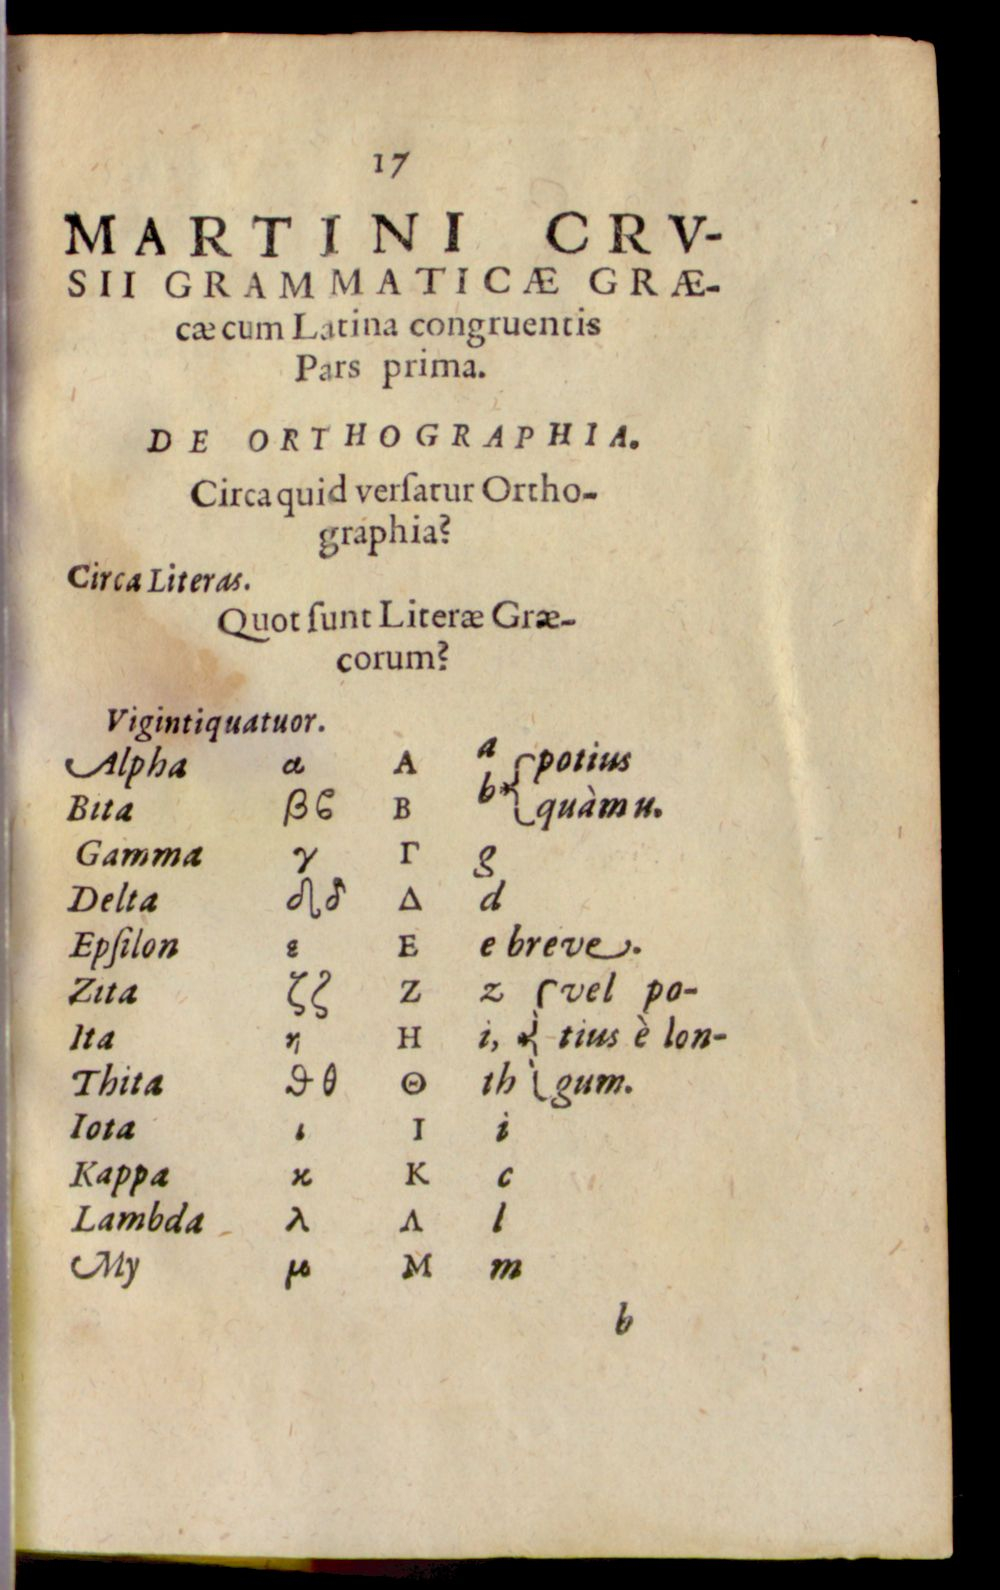 17
MARTINI CRV-
SII GRAMMATICÆ GRÆ-
cæ cum Latina congruentis
Pars prima.
DE ORTHOGRAPHIA.
Circa quid verſatur Ortho-
graphia?
Circa Literas.
Quot ſunt Literæ Græ-
corum?
Vigintiquatuor.
Alpha α Α a potius
Bita β ϐ Β b quàm u.
Gamma γ Γ g
Delta δ δ Δ d
Epſilon ε Ε e breve.
Zita ζ ζ Ζ z vel po-
Ita η Η i, tius è lon-
Thita ϑ θ Θ th gum.
Iota ι Ι i
Kappa ϰ Κ c
Lambda λ Λ l
My μ Μ m
b